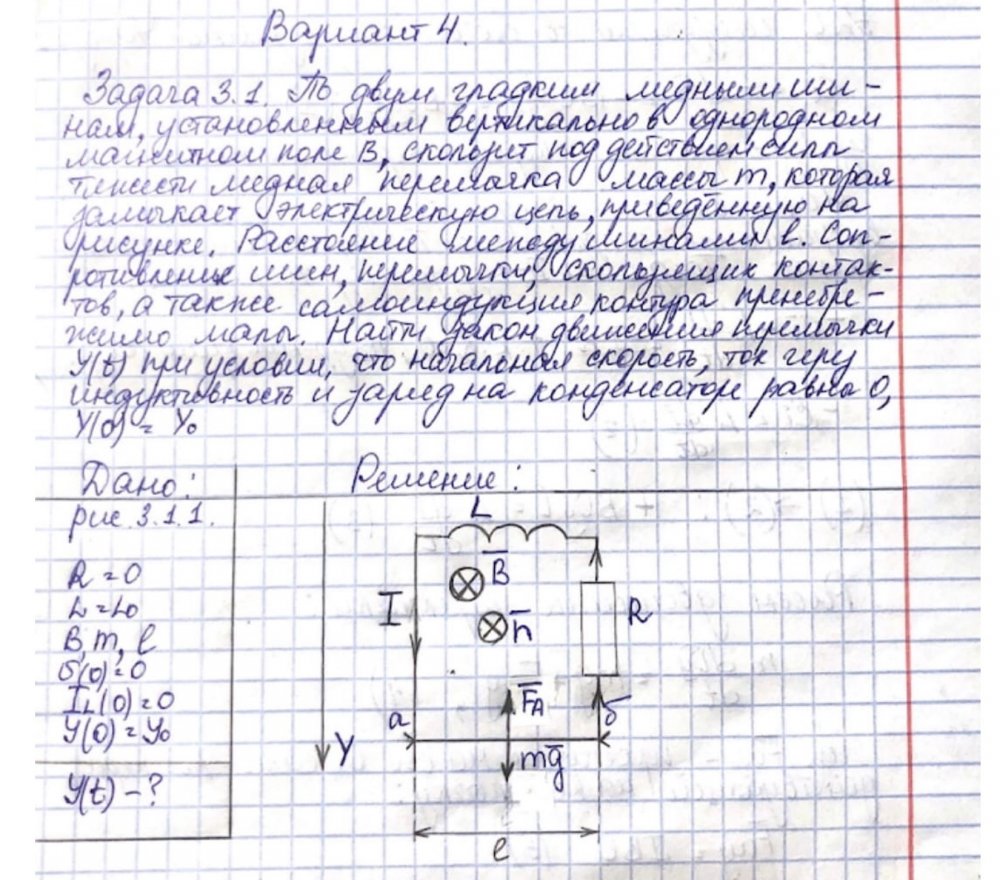 Вариант 4.
Задача 3.1. По двум гладким медным ши-
нам, установленным вертикально в однородном
магнитном поле B, скользит под действием силы
тяжести медная перемычка массы m, которая
замыкает электрическую цепь, приведённую на
рисунке. Расстояние между шинами l. Соп-
ротивление шин, перемычки, скользящих контак-
тов, а также самоиндукция контура пренебре-
жимо малы. Найти закон движения перемычки
Y(t) при условии, что начальная скорость, ток через
индуктивность и заряд на конденсаторе равна 0,
Y(0) = Y₀
Дано:
Решение:
рис. 3.1.1.
R = 0
L = L₀
B, m, l
V(0) = 0
I_L(0) = 0
Y(0) = Y₀
Y(t) - ?
L
B
I
n
R
F_A
а
б
Y
mg
l